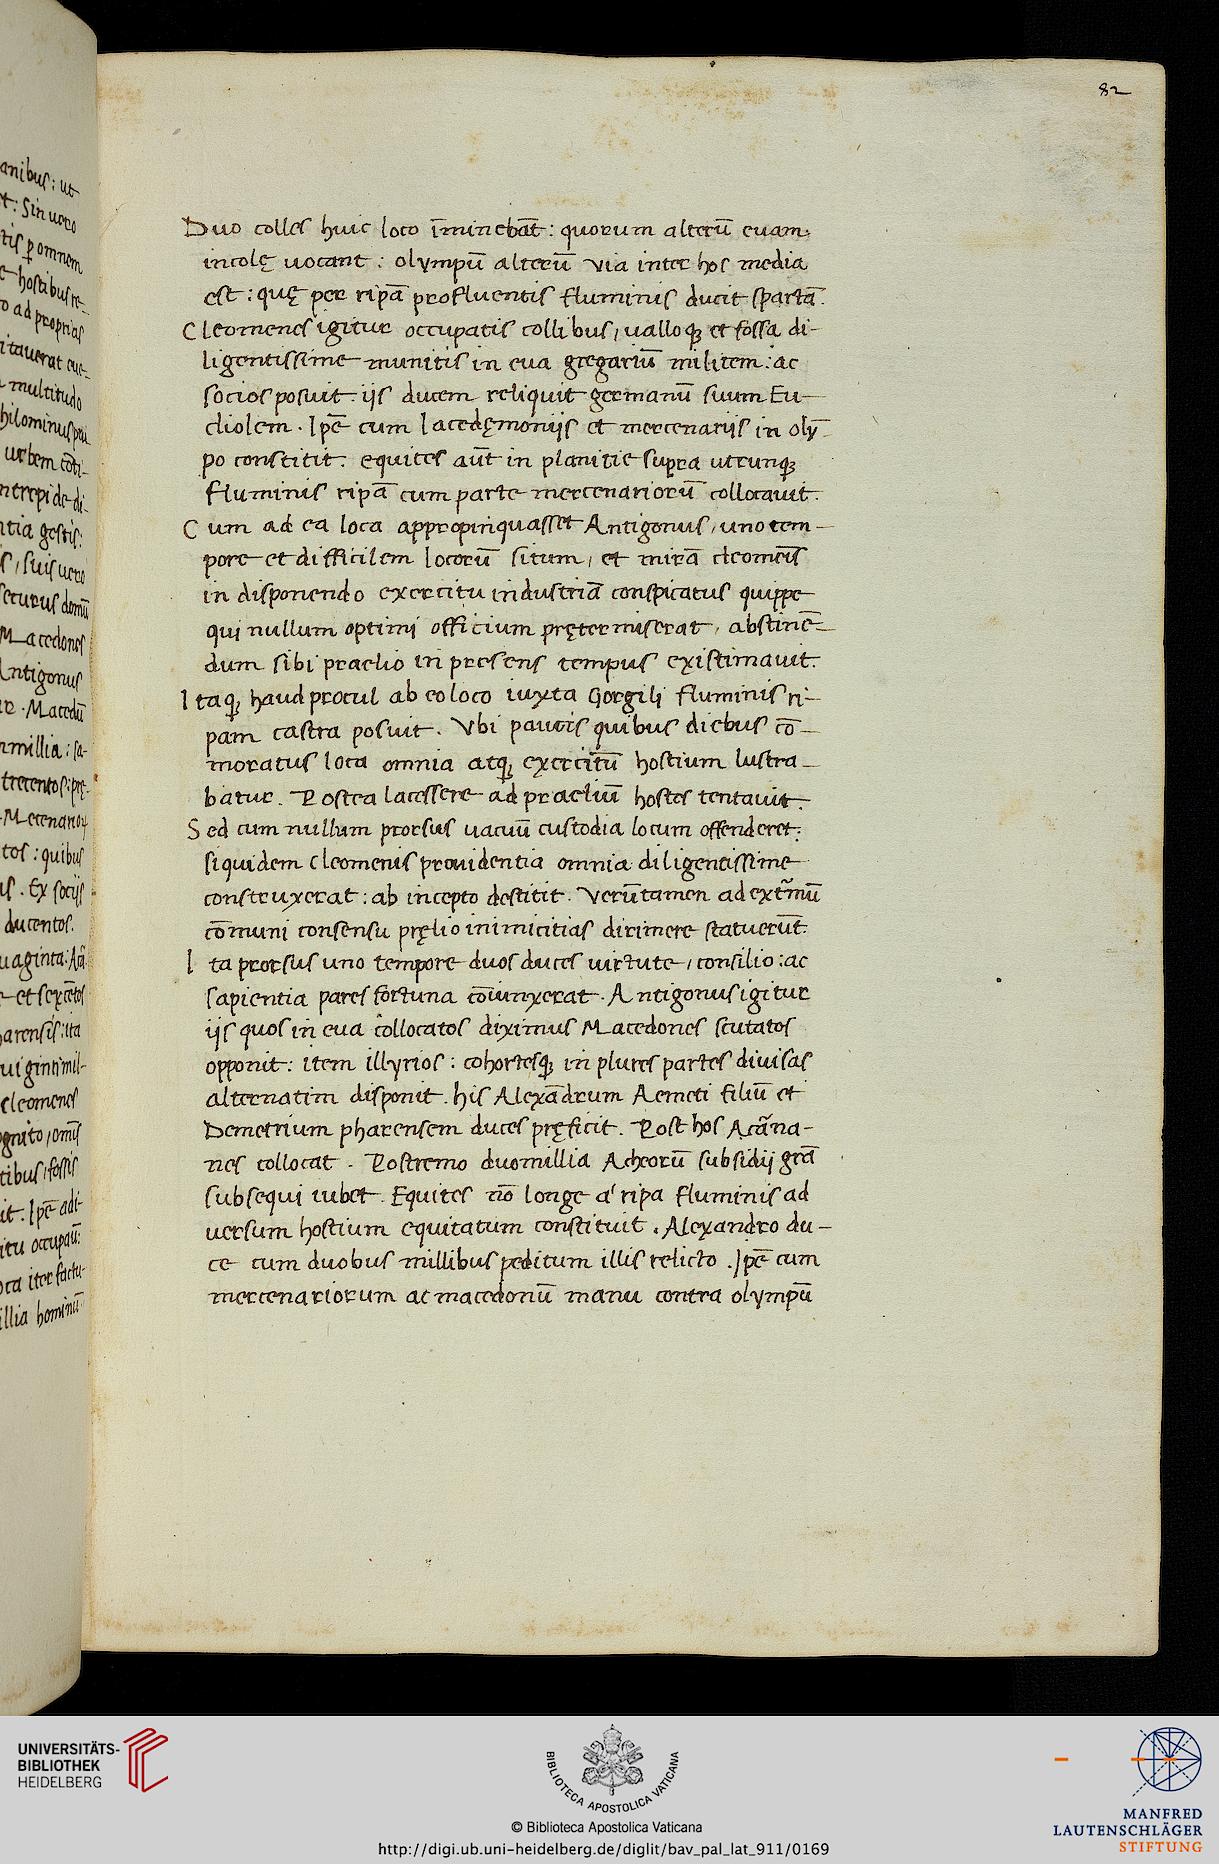 82
Duo colles huic loco īminebāt : quorum alterū euam
incolę uocant : olympū alterū via inter hos media
est : quę per ripā profluentis fluminis ducit spartā.
Cleomenes igitur occupatis collibus, ualloq; et fossa di-
ligentissime munitis in eua gregariū militem : ac
socios posuit. iis ducem reliquit germanū suum Eu-
clidem. Ipē cum lacedęmoniis et mercenariis in olȳ-
po constitit. equites aūt in planitie supra utrunq;
fluminis ripā cum parte mercenariorū collocauit.
Cum ad ea loca appropinquasset Antigonus, uno tem-
pore et difficilem locorū situm, et mirā cleomēis
in disponendo exercitu industriā conspicatus quippe
qui nullum optimi officium prętermiserat, abstinē-
dum sibi praelio in presens tempus existimauit.
Itaq; haud procul ab eo loco iuxta Gorgili fluminis ri-
pam castra posuit. Vbi paucis quibus diebus cō-
moratus loca omnia atq; exercitū hostium lustra-
batur. Postea lacessere ad praeliū hostes tentauit.
Sed cum nullum prorsus uacuū custodia locum offenderet :
siquidem Cleomenis prouidentia omnia diligentissime
construxerat : ab incepto destitit. Verūtamen ad extrēmū
cōmuni consensu pręlio inimicitias dirimere statuerūt.
Ita prorsus uno tempore duos duces uirtute, consilio : ac
sapientia pares fortuna cōiunxerat. Antigonus igitur
iis quos in eua collocatos diximus Macedones scutatos
opponit : item illyrios : cohortesq; in plures partes diuisas
alternatim disponit. his Alexādrum Aemeti filiū et
Demetrium pharensem duces pręficit. Post hos Acārna-
nes collocat. Postremo duomillia Acheorū subsidij grā
subsequi iubet. Equites nō longe a' ripa fluminis ad
uersum hostium equitatum constituit. Alexandro du-
ce cum duobus millibus peditum illis relicto. Ipē cum
mercenariorum ac macedonū manu contra olympū
UNIVERSITÄTS-
BIBLIOTHEK
HEIDELBERG
BIBLIOTECA APOSTOLICA VATICANA
© Biblioteca Apostolica Vaticana
http://digi.ub.uni-heidelberg.de/diglit/bav_pal_lat_911/0169
MANFRED
LAUTENSCHLÄGER
STIFTUNG